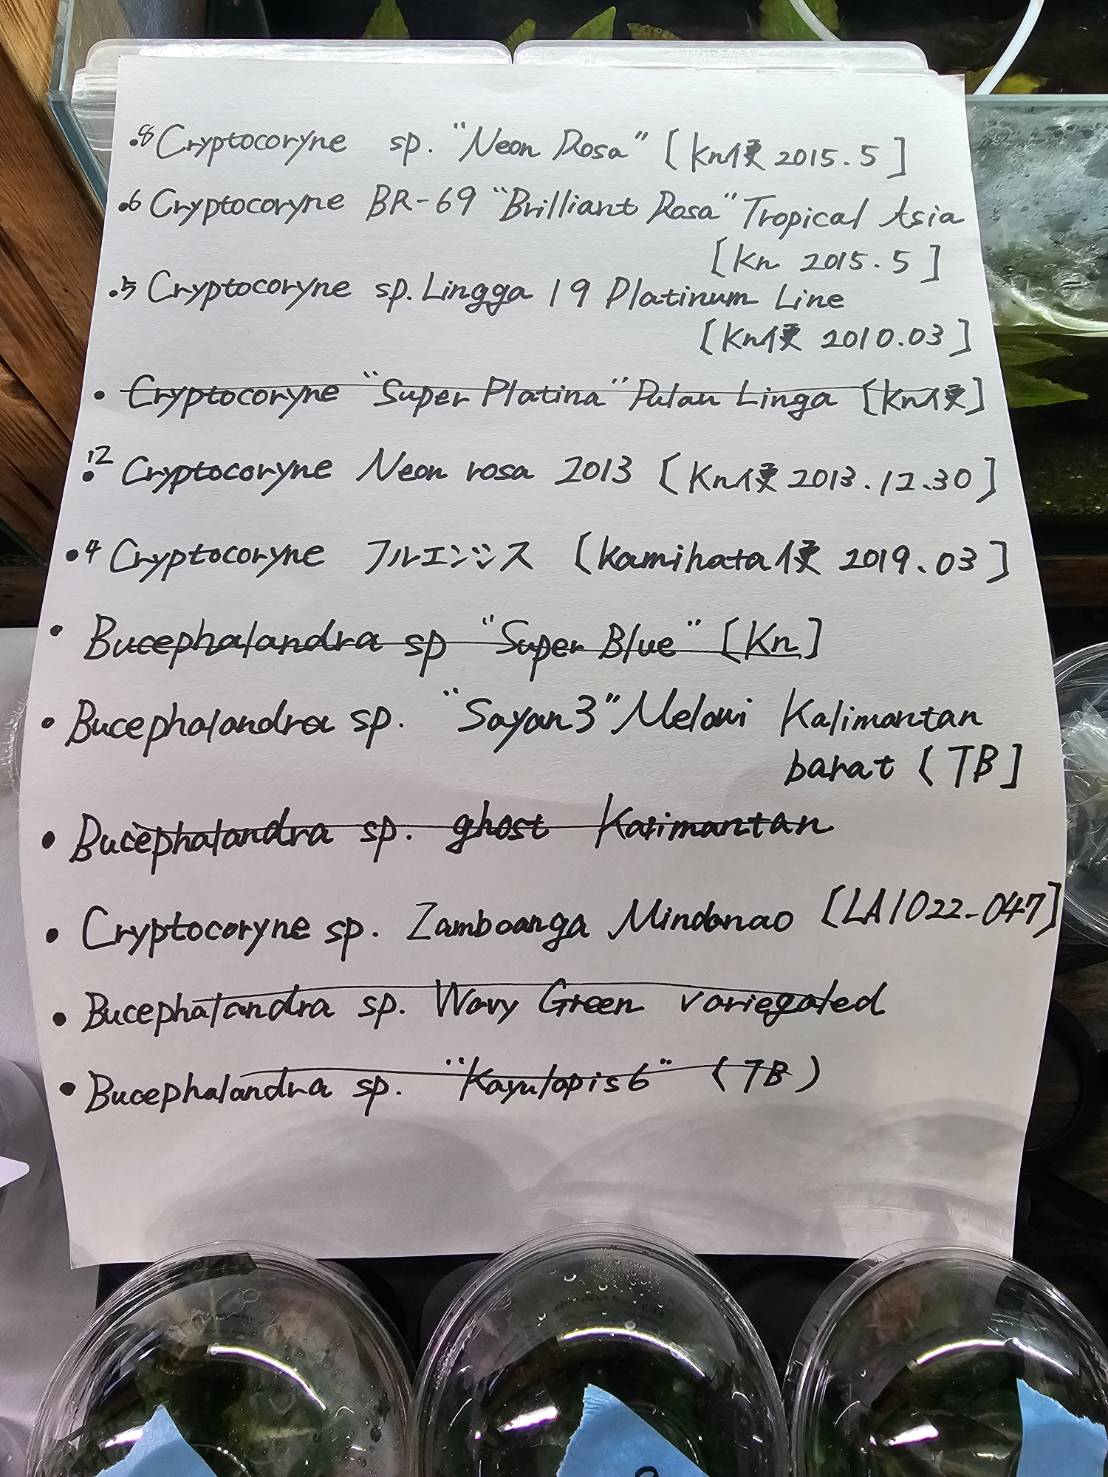 .8 Cryptocoryne sp. "Neon Rosa" [Kn便 2015.5]
.6 Cryptocoryne BR-69 "Brilliant Rosa" Tropical Asia
[Kn 2015.5]
.5 Cryptocoryne sp. Lingga 19 Platinum Line
[Kn便 2010.03]
• Cryptocoryne "Super Platina" Pulau Linga [Kn便]
•12 Cryptocoryne Neon rosa 2013 [Kn便 2013.12.30]
•4 Cryptocoryne フルエンシス [Kamihata便 2019.03]
• Bucephalandra sp "Super Blue" [Kn]
• Bucephalandra sp. "Sayan3" Melawi Kalimantan
barat [TB]
• Bucephalandra sp. ghost Kalimantan
• Cryptocoryne sp. Zamboanga Mindanao [LA1022-047]
• Bucephalandra sp. Wavy Green variegated
• Bucephalandra sp. "Kayulapis6" (TB)